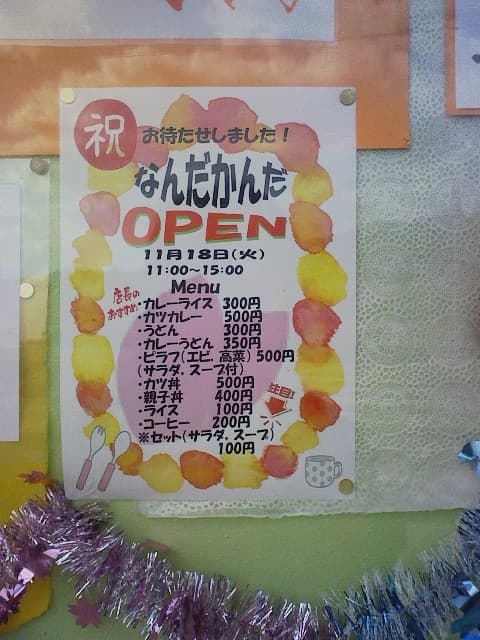 祝
お待たせしました！
なんだかんだ
OPEN
11月18日(火)
11:00～15:00
Menu
店長の
おすすめ
・カレーライス 300円
・カツカレー 500円
・うどん 300円
・カレーうどん 350円
・ピラフ(エビ、高菜) 500円
(サラダ、スープ付)
・カツ丼 500円
・親子丼 400円
・ライス 100円
・コーヒー 200円
注目!
※セット(サラダ、スープ)
100円